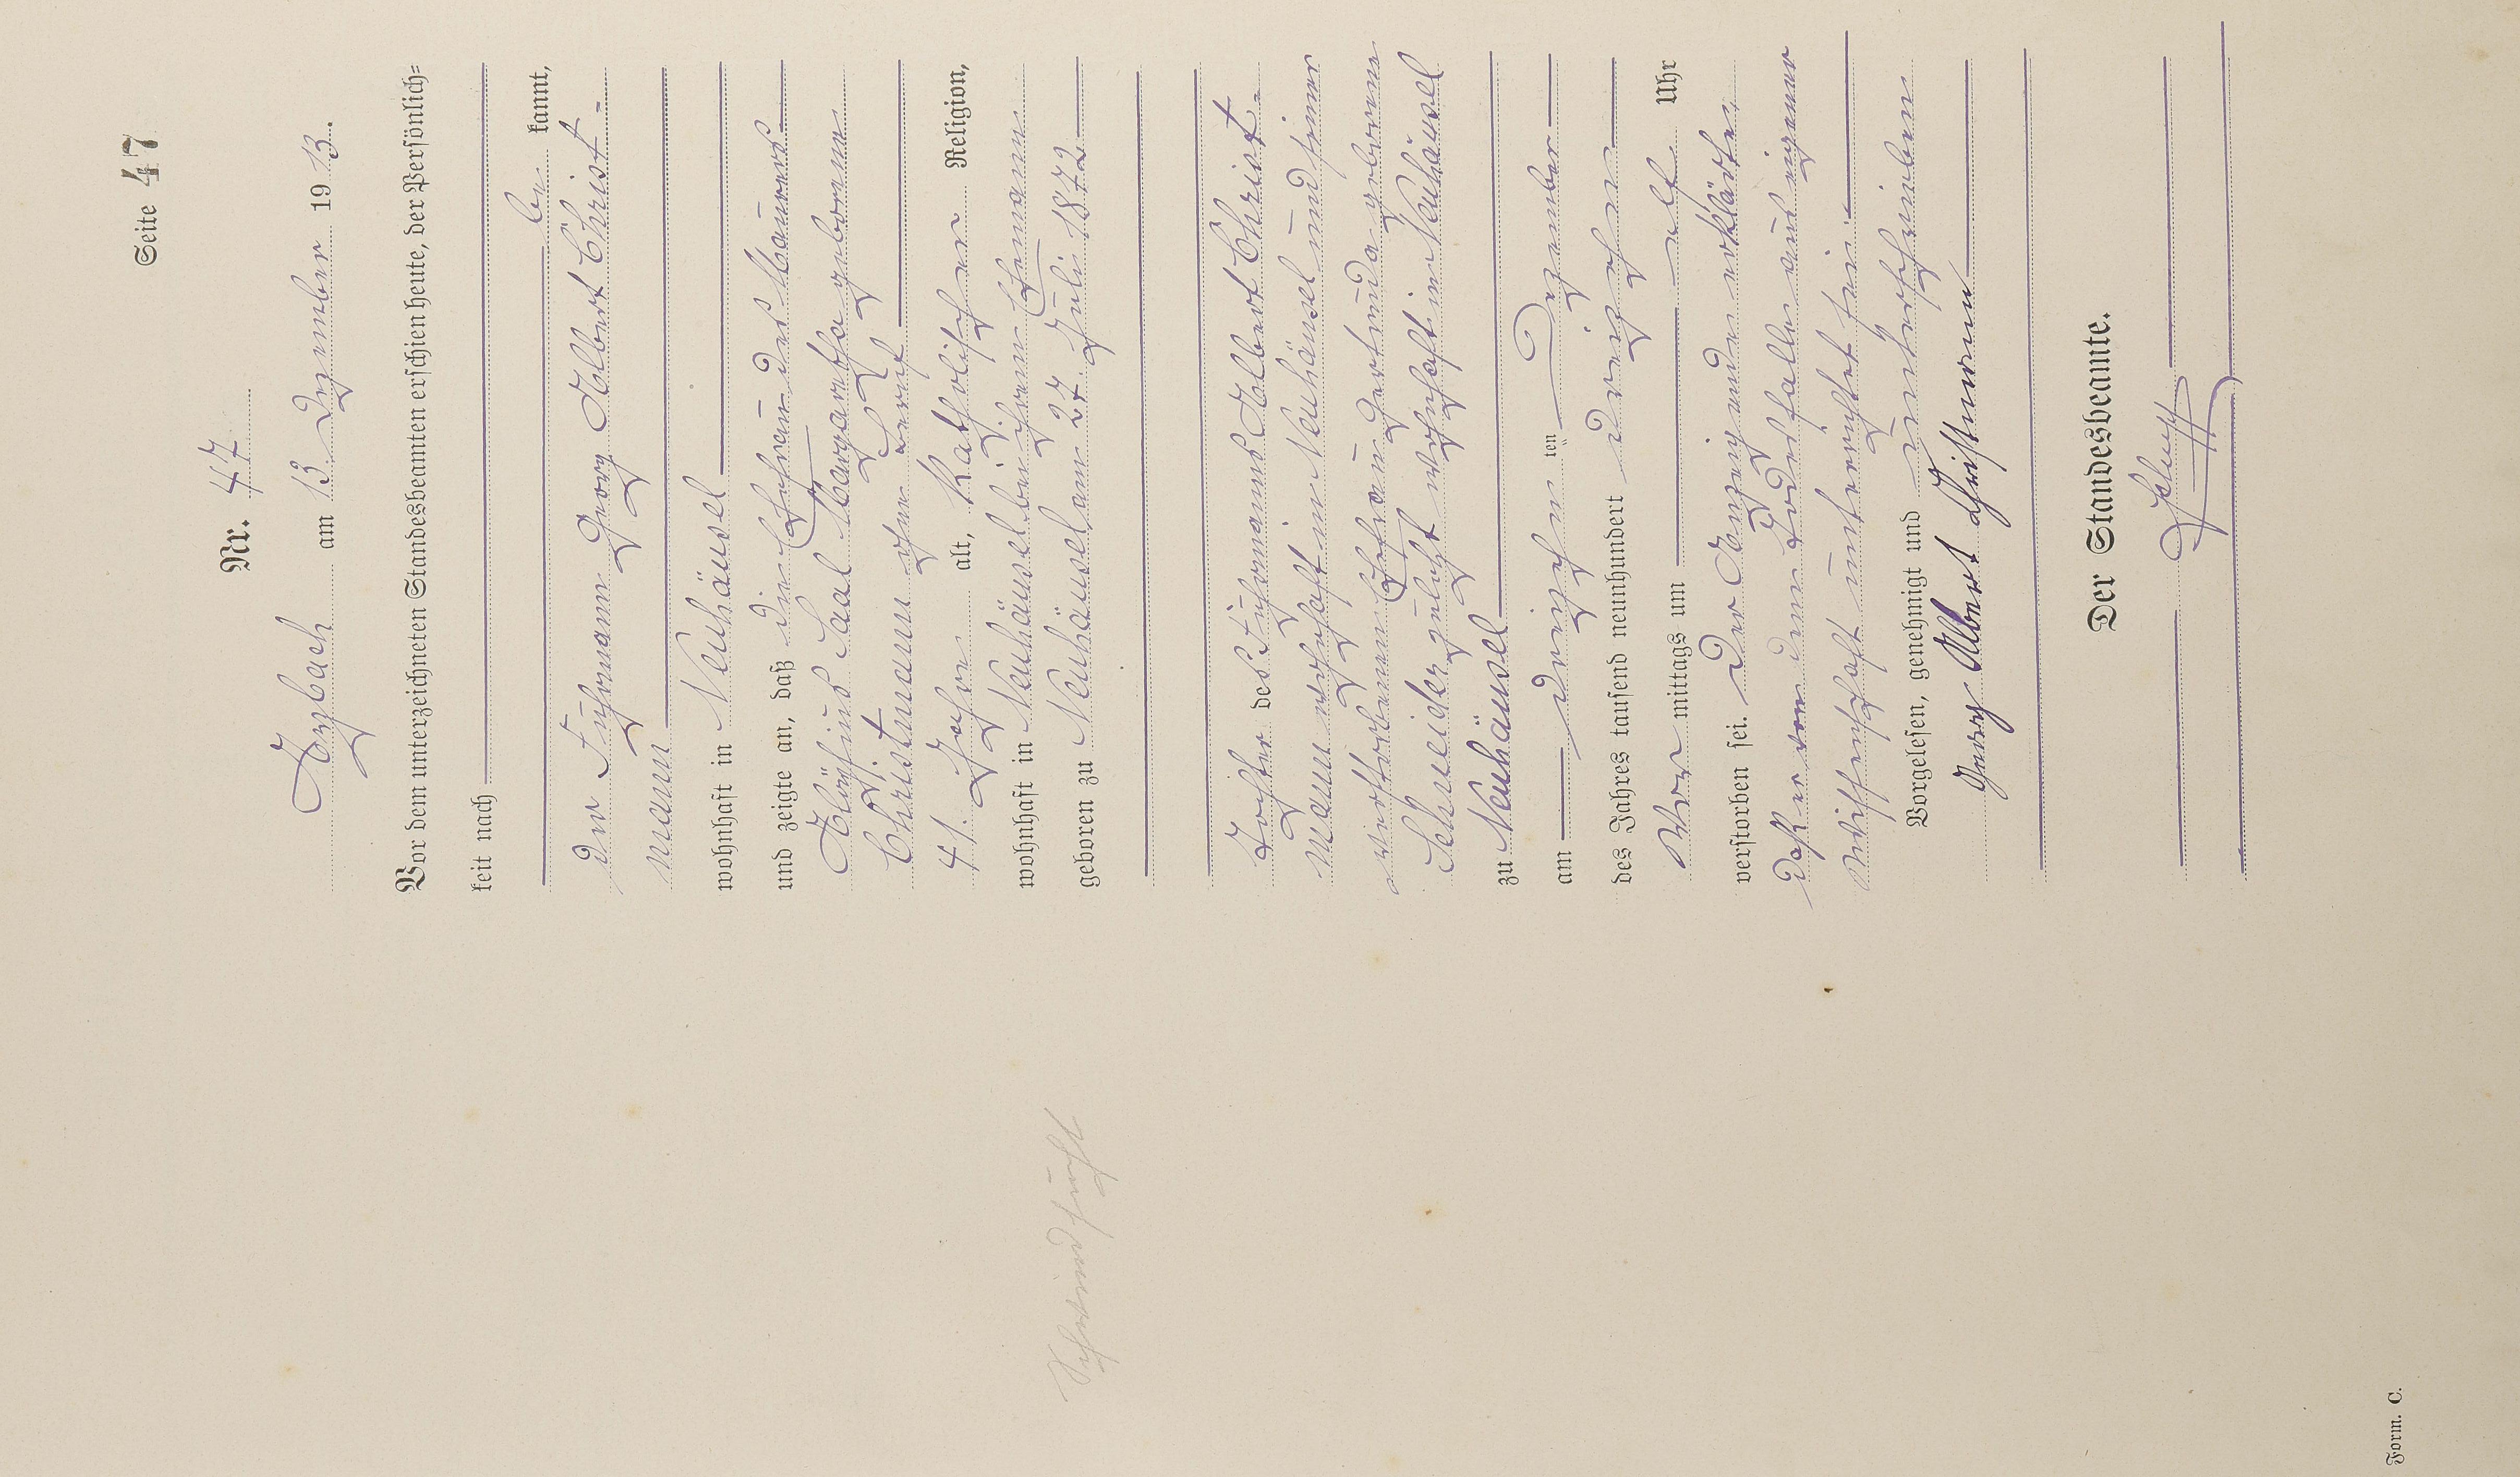 Seite 47
Nr. 47
Arzbach am 13. Dezember 1913.
Vor dem unterzeichneten Standesbeamten erschien heute, der Persönlich=
keit nach
be kannt,
der Fuhrmann Georg Albert Christ-
mann
wohnhaft in Neuhäusel
und zeigte an, daß die Ehefrau des Maurers
Aloysius Saal Margaretha geborene
Christmann ohne Beruf
41 Jahre alt, Katholischer Religion,
wohnhaft in Neuhäusel bei ihrem Ehemann
geboren zu Neuhäusel am 27. Juli 1872
Tochter des Fuhrmanns Albert Christ-
mann wohnhaft in Neuhäusel und seiner
verstorbenen Ehefrau Gertruda geborene
Schneider zuletzt wohnhaft in Neuhäusel
zu Neuhäusel
am dreizehn ten Dezember
des Jahres tausend neunhundert dreizehn
Vor mittags um elf Uhr
verstorben sei. Der Anzeigende erklärte,
daß er von dem Todesfalle aus eigener
Wissenschaft unterrichtet sei.
Vorgelesen, genehmigt und unterschrieben
Georg Albert Christmann
Der Standesbeamte.
Schwindsucht
Form. C.